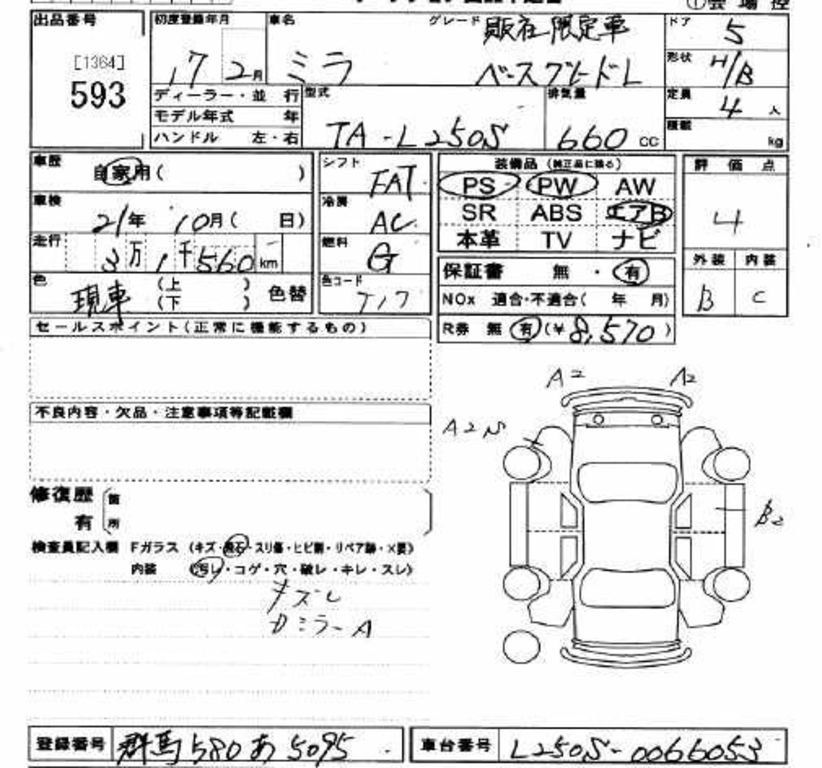 出品番号 初度登録年月 車名 グレード 販社限定車 ドア 5
[1364] 593 17 2月 ミラ ベースグレードL 形状 H/B
ディーラー・並 行 型式 TA-L250S 排気量 660 cc 定員 4人
モデル年式 年 積載 kg
ハンドル 左・右
車歴 自家用( ) シフト FAT 装備品(純正品に限る) 評価点
車検 21年 10月( 日) 冷房 AC PS PW AW 4
走行 3万1千560km 燃料 G SR ABS エアB
本革 TV ナビ 外装 内装
色 現車 (上 ) (下 ) 色替 色コード T17 保証書 無・有 B C
NOx 適合・不適合( 年 月)
R券 無 有(¥8,570)
セールスポイント(正常に機能するもの)
A2 A2
不良内容・欠品・注意事項等記載欄
A2S
修復歴 有 箇所
B2
検査員記入欄 Fガラス (キズ・飛石・スリ傷・ヒビ割・リペア跡・X要)
内装 (汚レ・コゲ・穴・破レ・キレ・スレ)
キズし
ミラーA
登録番号 群馬580あ5095 車台番号 L250S-0066053